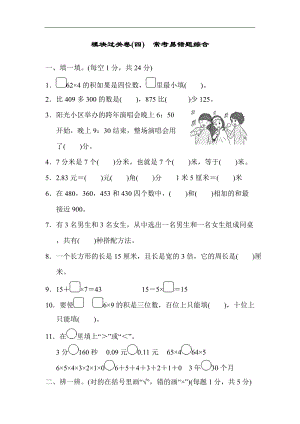 模块过关卷(四)　常考易错题综合
一、填一填。(每空1分，共24分)
1．□62×4的积如果是四位数，□里最小填(　　)。
2．比409多300的数是(　　)，875比(　　)少125。
3．阳光小区举办的跨年演唱会晚上6：50
开始，晚上9：30结束，整场演唱会用
了(　　)。
4．7分米是7个(　　)米，也就是7个(　　)米，等于(　　)米。
5．2.83元＝(　　)元(　　)角(　　)分　1米5厘米＝(　　)米
6．在480，360，453和430四个数中，(　　)和(　　)相加的和最
接近900。
7．有3名男生和3名女生，从中选出一名男生和一名女生组成同桌
，共有(　　)种搭配方法。
8．一个长方形的长是15厘米，且长是宽的3倍。它的周长是(　　)厘
米。
9．15＋□×7＝43　　15－5×□＝15
10．要使□6×9的积是三位数，百位上只能填(　　)，十位上
只能填(　　)。
11．在○里填上“＞”或“＜”。
3分○160秒　0.09元○0.11元　65×4○64×5
6×5×4×3×2×1×0○6＋5＋4＋3＋2＋1＋0　3年○30个月
二、辨一辨。(对的在括号里画“√”，错的画“×”)(每题1分，共5分)